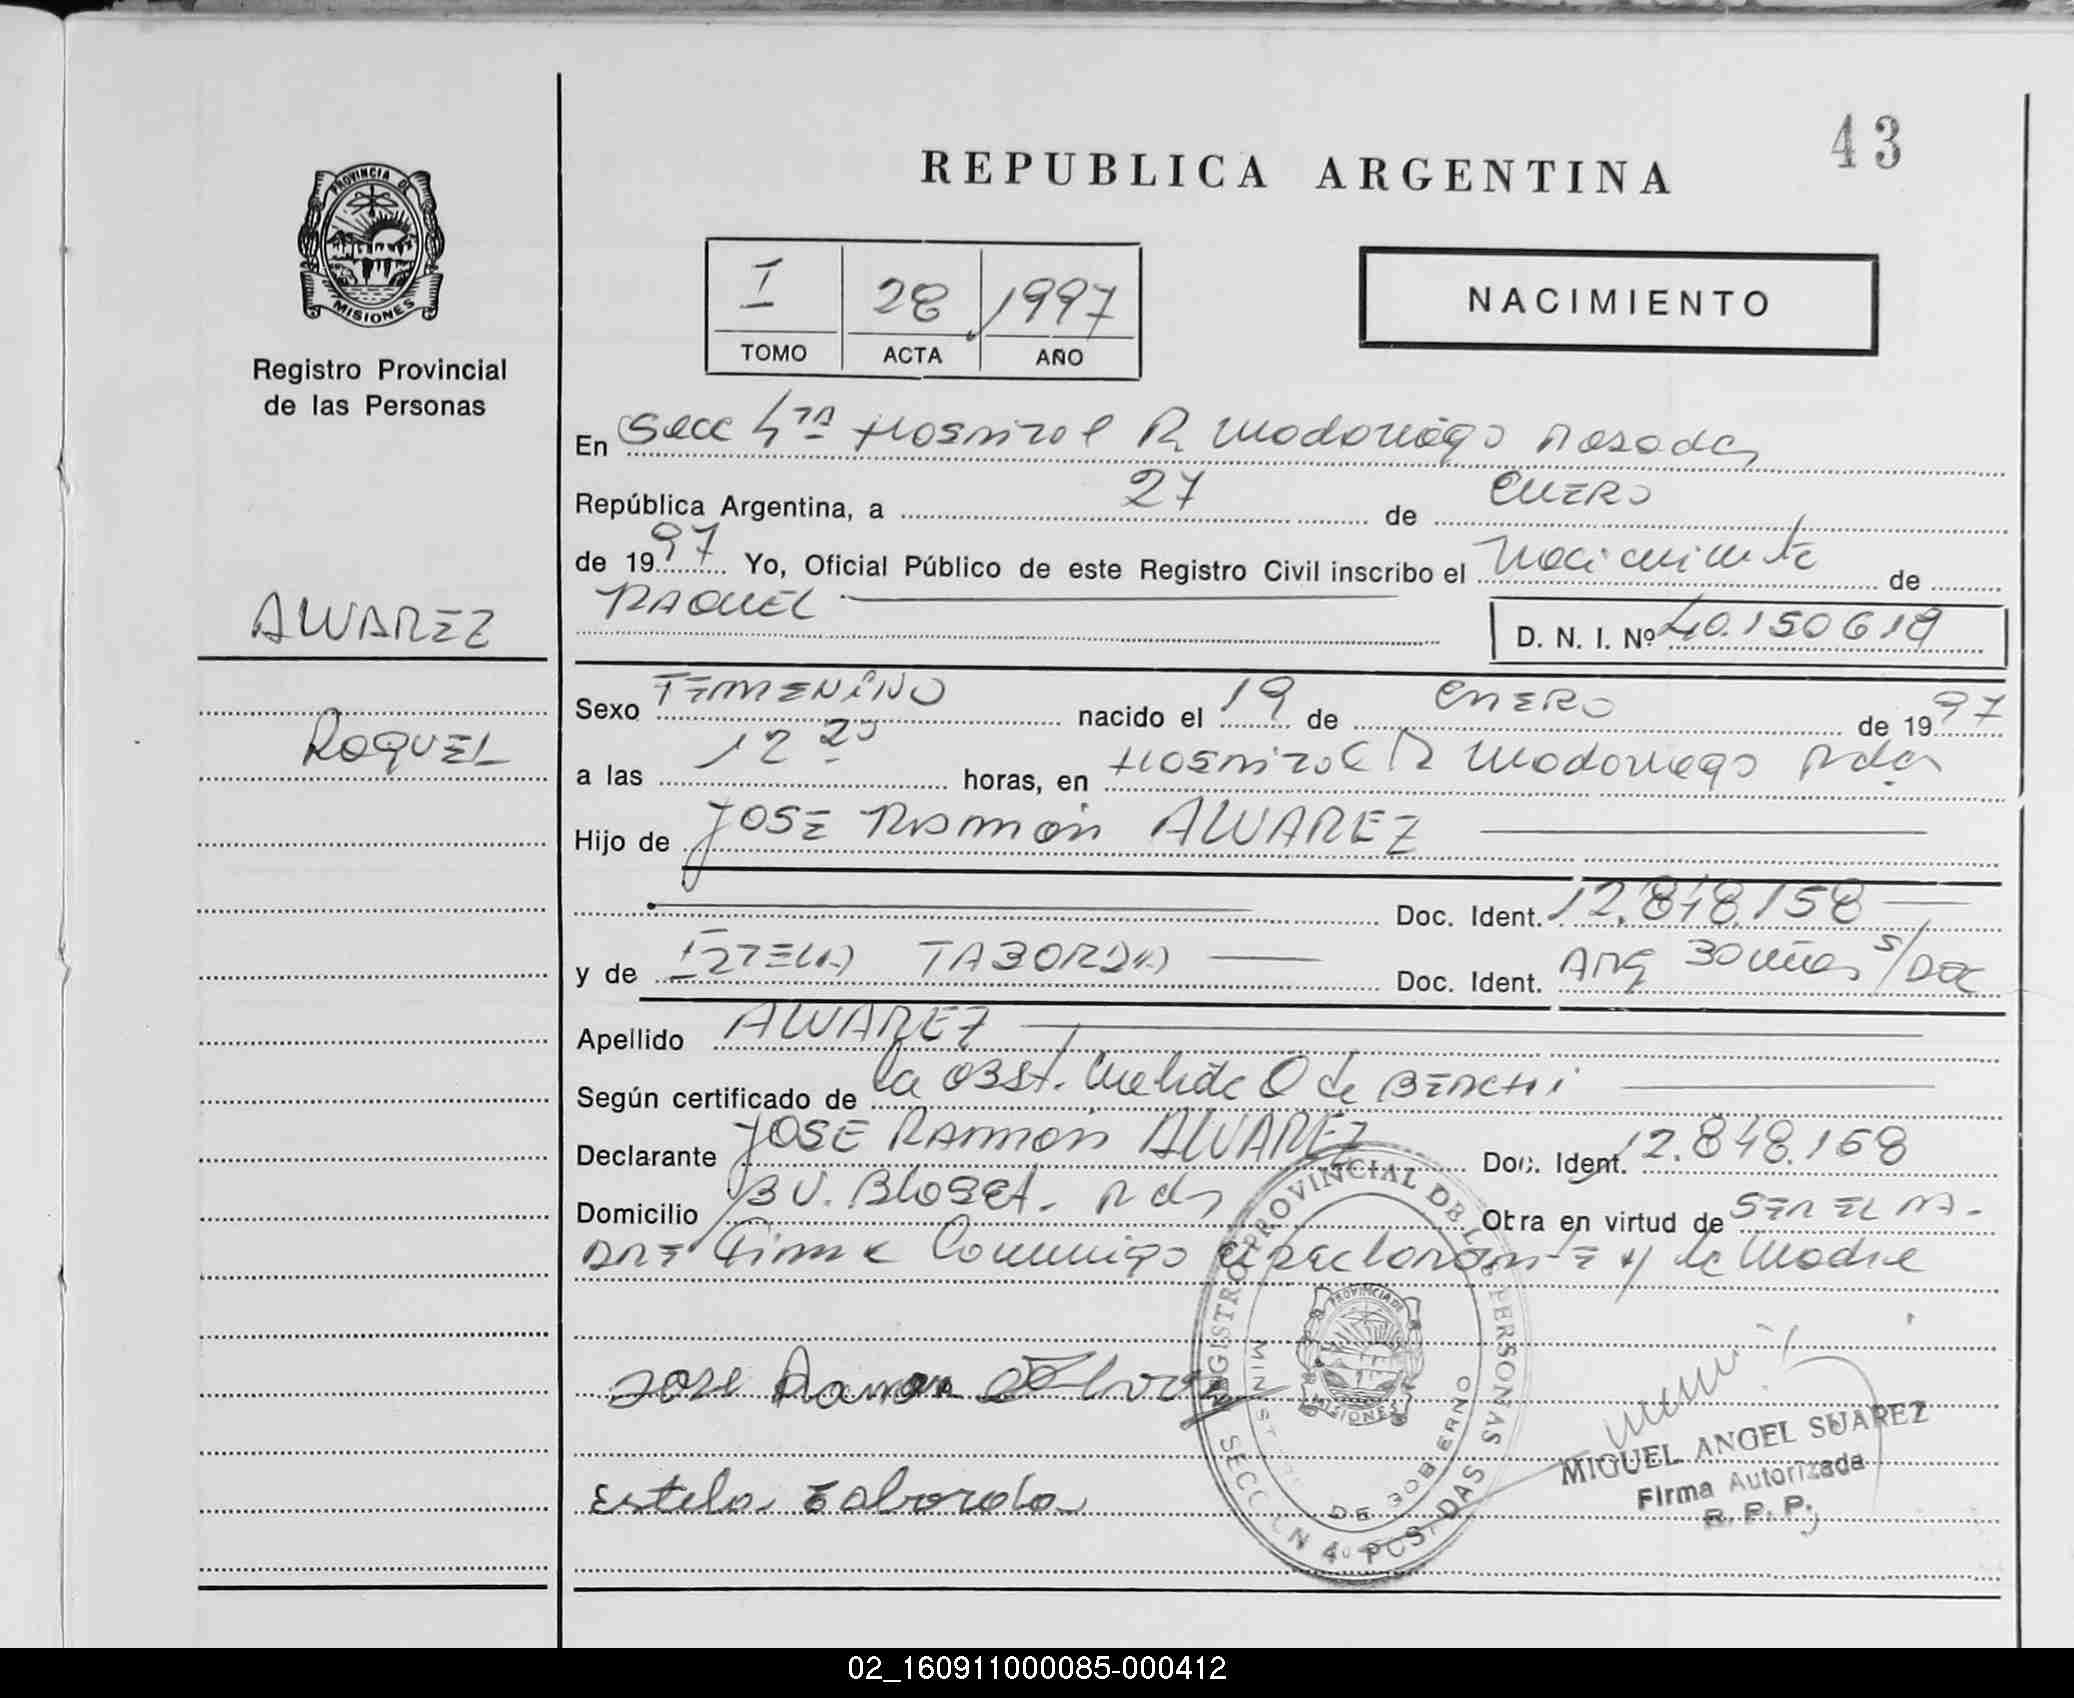 43
REPUBLICA ARGENTINA
PROVINCIA DE
MISIONES
Registro Provincial
de las Personas
I 28 1997
TOMO ACTA AÑO
NACIMIENTO
En Secc 4ta Hospital R Madariaga Posadas
República Argentina, a 27 de ENERO
de 1997 Yo, Oficial Público de este Registro Civil inscribo el Nacimiento de
RAQUEL
D. N. I. Nº 40.150619
ALVAREZ
RAQUEL
Sexo FEMENINO nacido el 19 de ENERO de 1997
a las 12 20 horas, en Hospital R Madariaga Pdas
Hijo de JOSE RAMON ALVAREZ
Doc. Ident. 12.848.158
y de ESTELA TABORDA Doc. Ident. ARG 30 años S/DOC
Apellido ALVAREZ
Según certificado de la OBST. de
Declarante JOSE RAMON ALVAREZ Doc. Ident. 12.848.158
Domicilio Pds Otra en virtud de SER EL PA-
DRE Firma Conmigo el declarante y la Madre
Jose Ramon Alvarez
Estela Taborda
REGISTRO PROVINCIAL DE LAS PERSONAS
MINIST DE GOBIERNO
PROVINCIA DE
MISIONES
SECCION 4º POSADAS
MIGUEL ANGEL SUAREZ
Firma Autorizada
R. P. P.
02_160911000085-000412